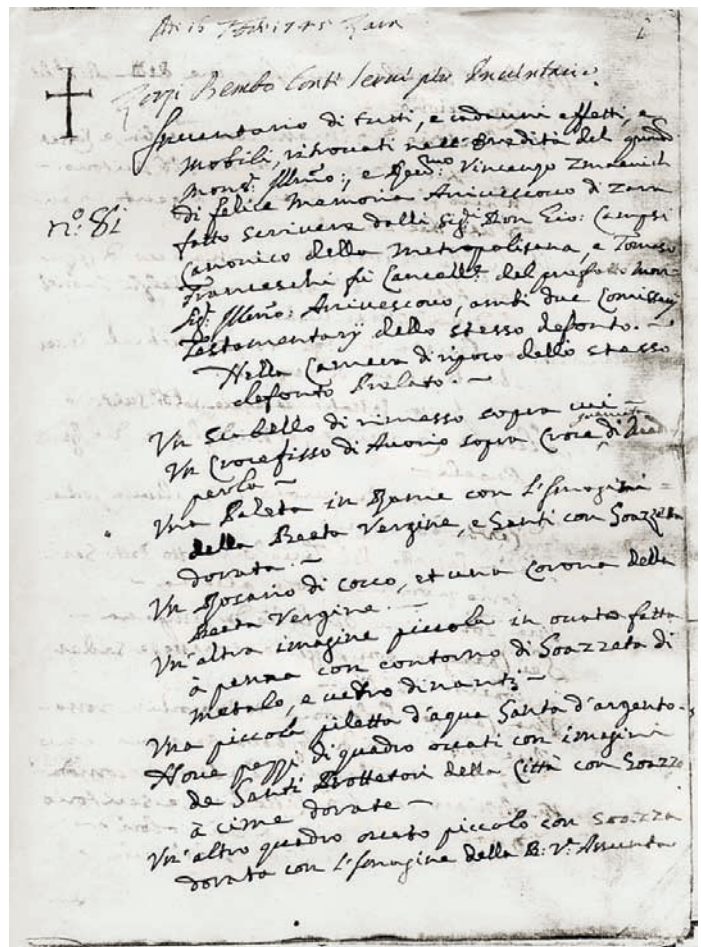 Adi 16 7bre 1745 Zara
1
Zorzi Bembo Conti
Inventario di tutti, e cadauni effetti, e
mobili, ritrovati nell'Eredità del quond
Mons.r Illmo:, e Rev.mo Vincenzo Zmaevich
n.o: 81
di felice memoria Arcivescovo di Zara
fatto scrivere dalli Sig.ri Don Gio: Campsi
Canonico della Metropolitana, e Tomaso
Franceschi fù Cancell.r del prefato Mon=
Sig.r Illmo: Arcivescovo, ambi due Comissarij
Testamentarij dello stesso defonto.
Nella Camera di riposo dello stesso
defonto Prelato.
Un Scabello di rimesso sopra
Un Crocefisso di Avorio sopra Croce di Mad
perla
Una Paleta in Rame con l'Imagini
della Beata Vergine, e Santi con Soazeta
dorata.
Un Rosario di cocco, et una Corona della
Beata Vergine.
Un'altra imagine piccola in ovato fatta
à penna con contorno di Soazzeta di
metalo, e vetro dinanti
Una piccola piletta d'aqua Santa d'argento.
Nove pezzi di quadro ovati con imagini
de Santi Prottetori della Città con Soazze
à cime dorate
Un'altro quadro ovato piccolo con soazza
dorata con l'Imagine della B: V: Assunta